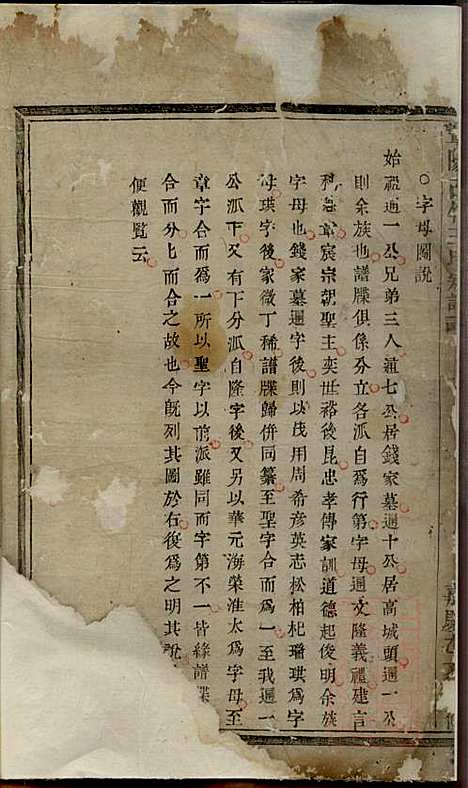 字母圖說
始禮通一公兄弟三人通七公居錢家墓通十公居高城頭通一公
則余族也譜牒俱係分立各派自為行第字母通文隆義禮建言
宸宗朝聖主奕世裕後昆忠孝傳家訓道德起俊明余族
字母也錢家墓通字後則以茂用周希彥英志松柏杞璠琪為字
母琪字後家微丁稀譜牒歸併同纂至聖字合而為一至我通一
公派下又有下分派自隆字後又另以華元海榮淮太為字母至
章字合而為一所以聖字以前派雖同而字第不一皆緣譜牒
合而分分而合之故也今既列其圖於右復為之明其說
便觀覽云